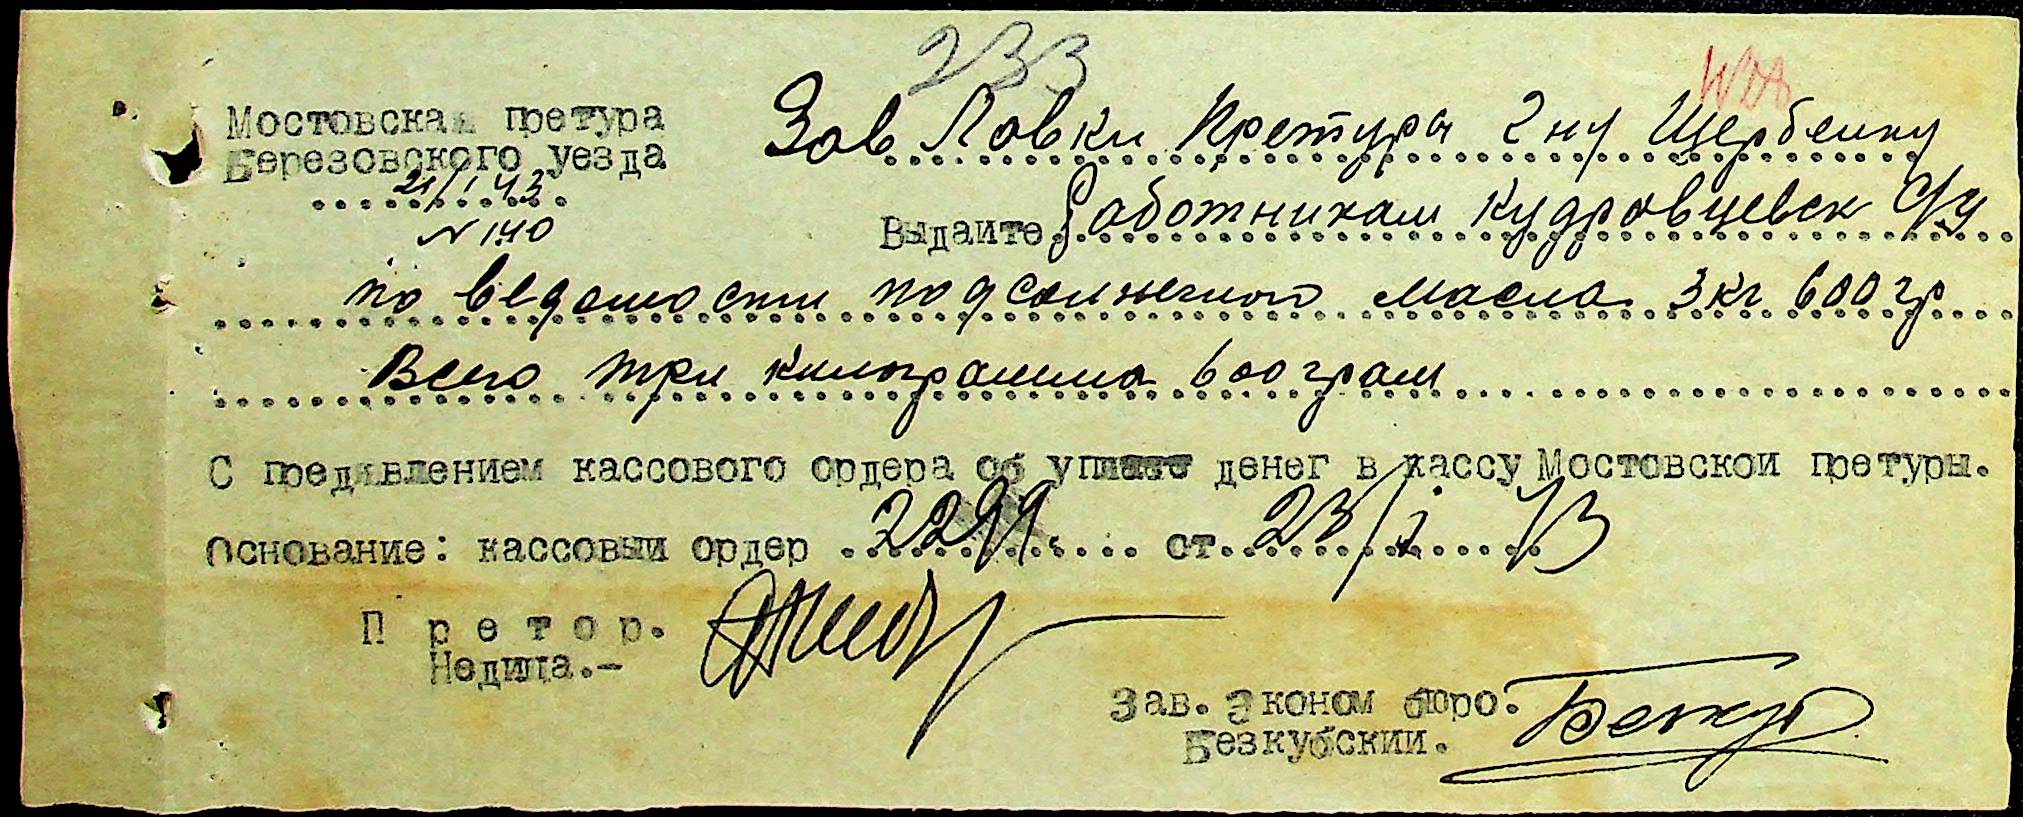 233
Мостовская претура
Березовского уезда
21/I 43
N 140
Зав Лавки Претуры Г ну Щербенку
Выдаите Работникам Кудрявцевск С/У
по ведомости подсолнечного масла 3 кг 600 гр
Всего три килограмма 600 грам
С предявлением кассового ордера об уплате денег в кассу Мостовской претуры.
Основание: кассовыи ордер 2299. от 23/I 43
П р е т о р.
Недица.-
Зав. Эконом бюро:
Безкубскии.